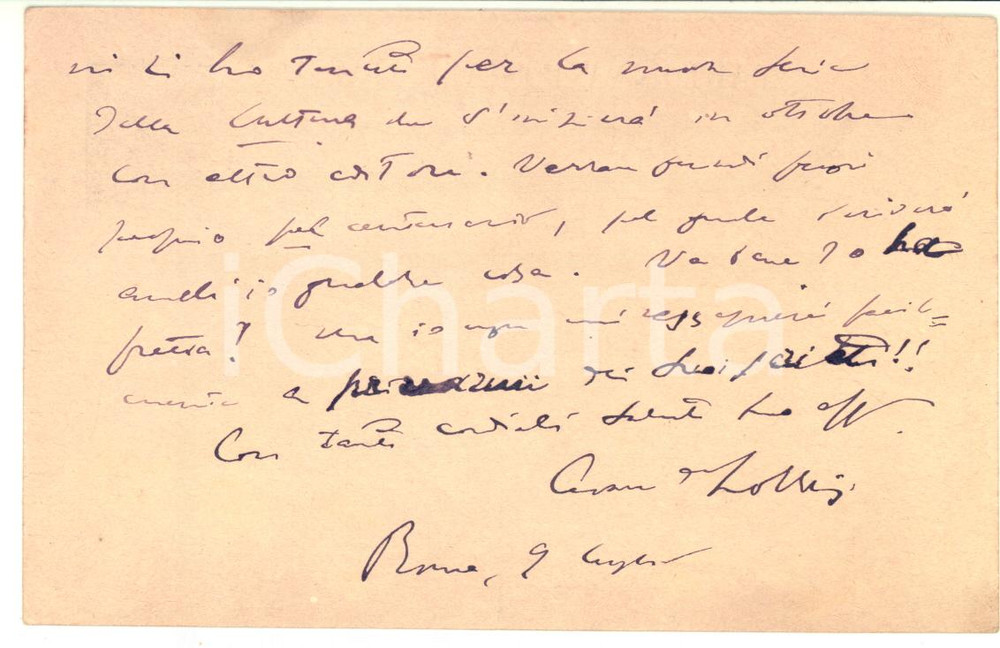 ni li ho tenuti per la nuova serie
della Cultura che s'inizierà in ottobre
con altro editore. Verran quindi fuori
proprio pel centenario, pel quale scriverò
anch'io qualche cosa. Va bene? o ha
fretta? Ma io non mi rassegnerei facil=
mente a privarmi dei Suoi scritti!!
Con tanti cordiali saluti Suo aff.
Cesare de Lollis
Roma, 9 luglio
iCharta